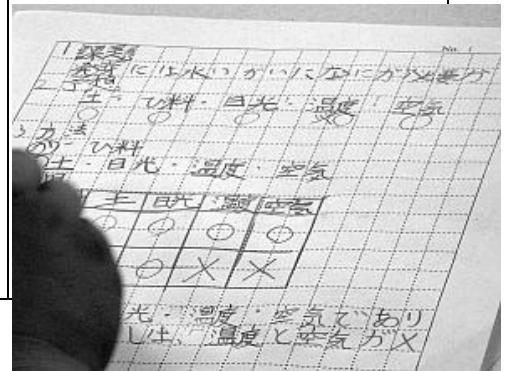 No. 1
1 課題
発芽には水いがいに何にが必要か
2. 予想
土・ひ料・日光・温度・空気
3 方法
ひ料
土・日光・温度・空気
土 日光 温度 空気
○ ○ ○ ○
○ × ×
光・温度・空気であり
しは、温度と空気が×